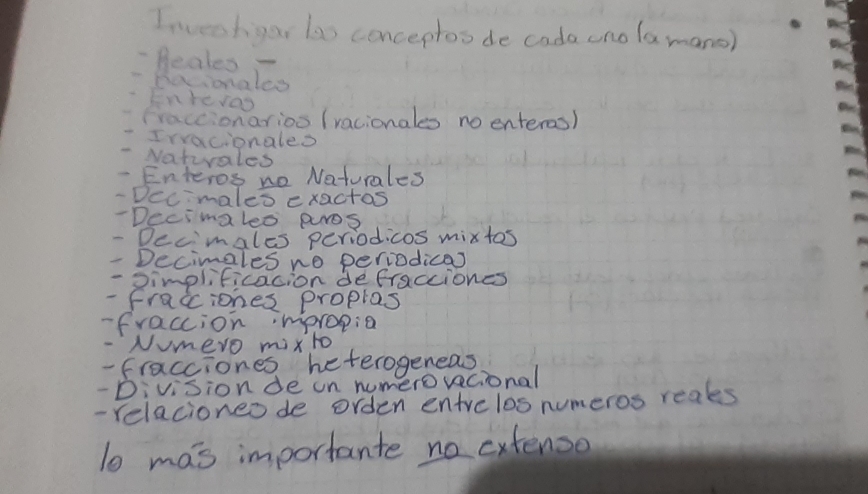 Investigar los conceptos de cada uno (a mano)
- Reales -
- Racionales
- Enteros
- Fraccionarios (racionales no enteros)
- Irracionales
- Naturales
- Enteros no Naturales
- Decimales exactos
- Decimales puros
- Decimales periodicos mixtos
- Decimales no periodicos
- Simplificacion de fracciones
- fracciones propias
- fraccion impropia
- Numero mixto
- fracciones heterogeneas
- Division de un numero racional
- relaciones de orden entre los numeros reales
lo más importante no extenso